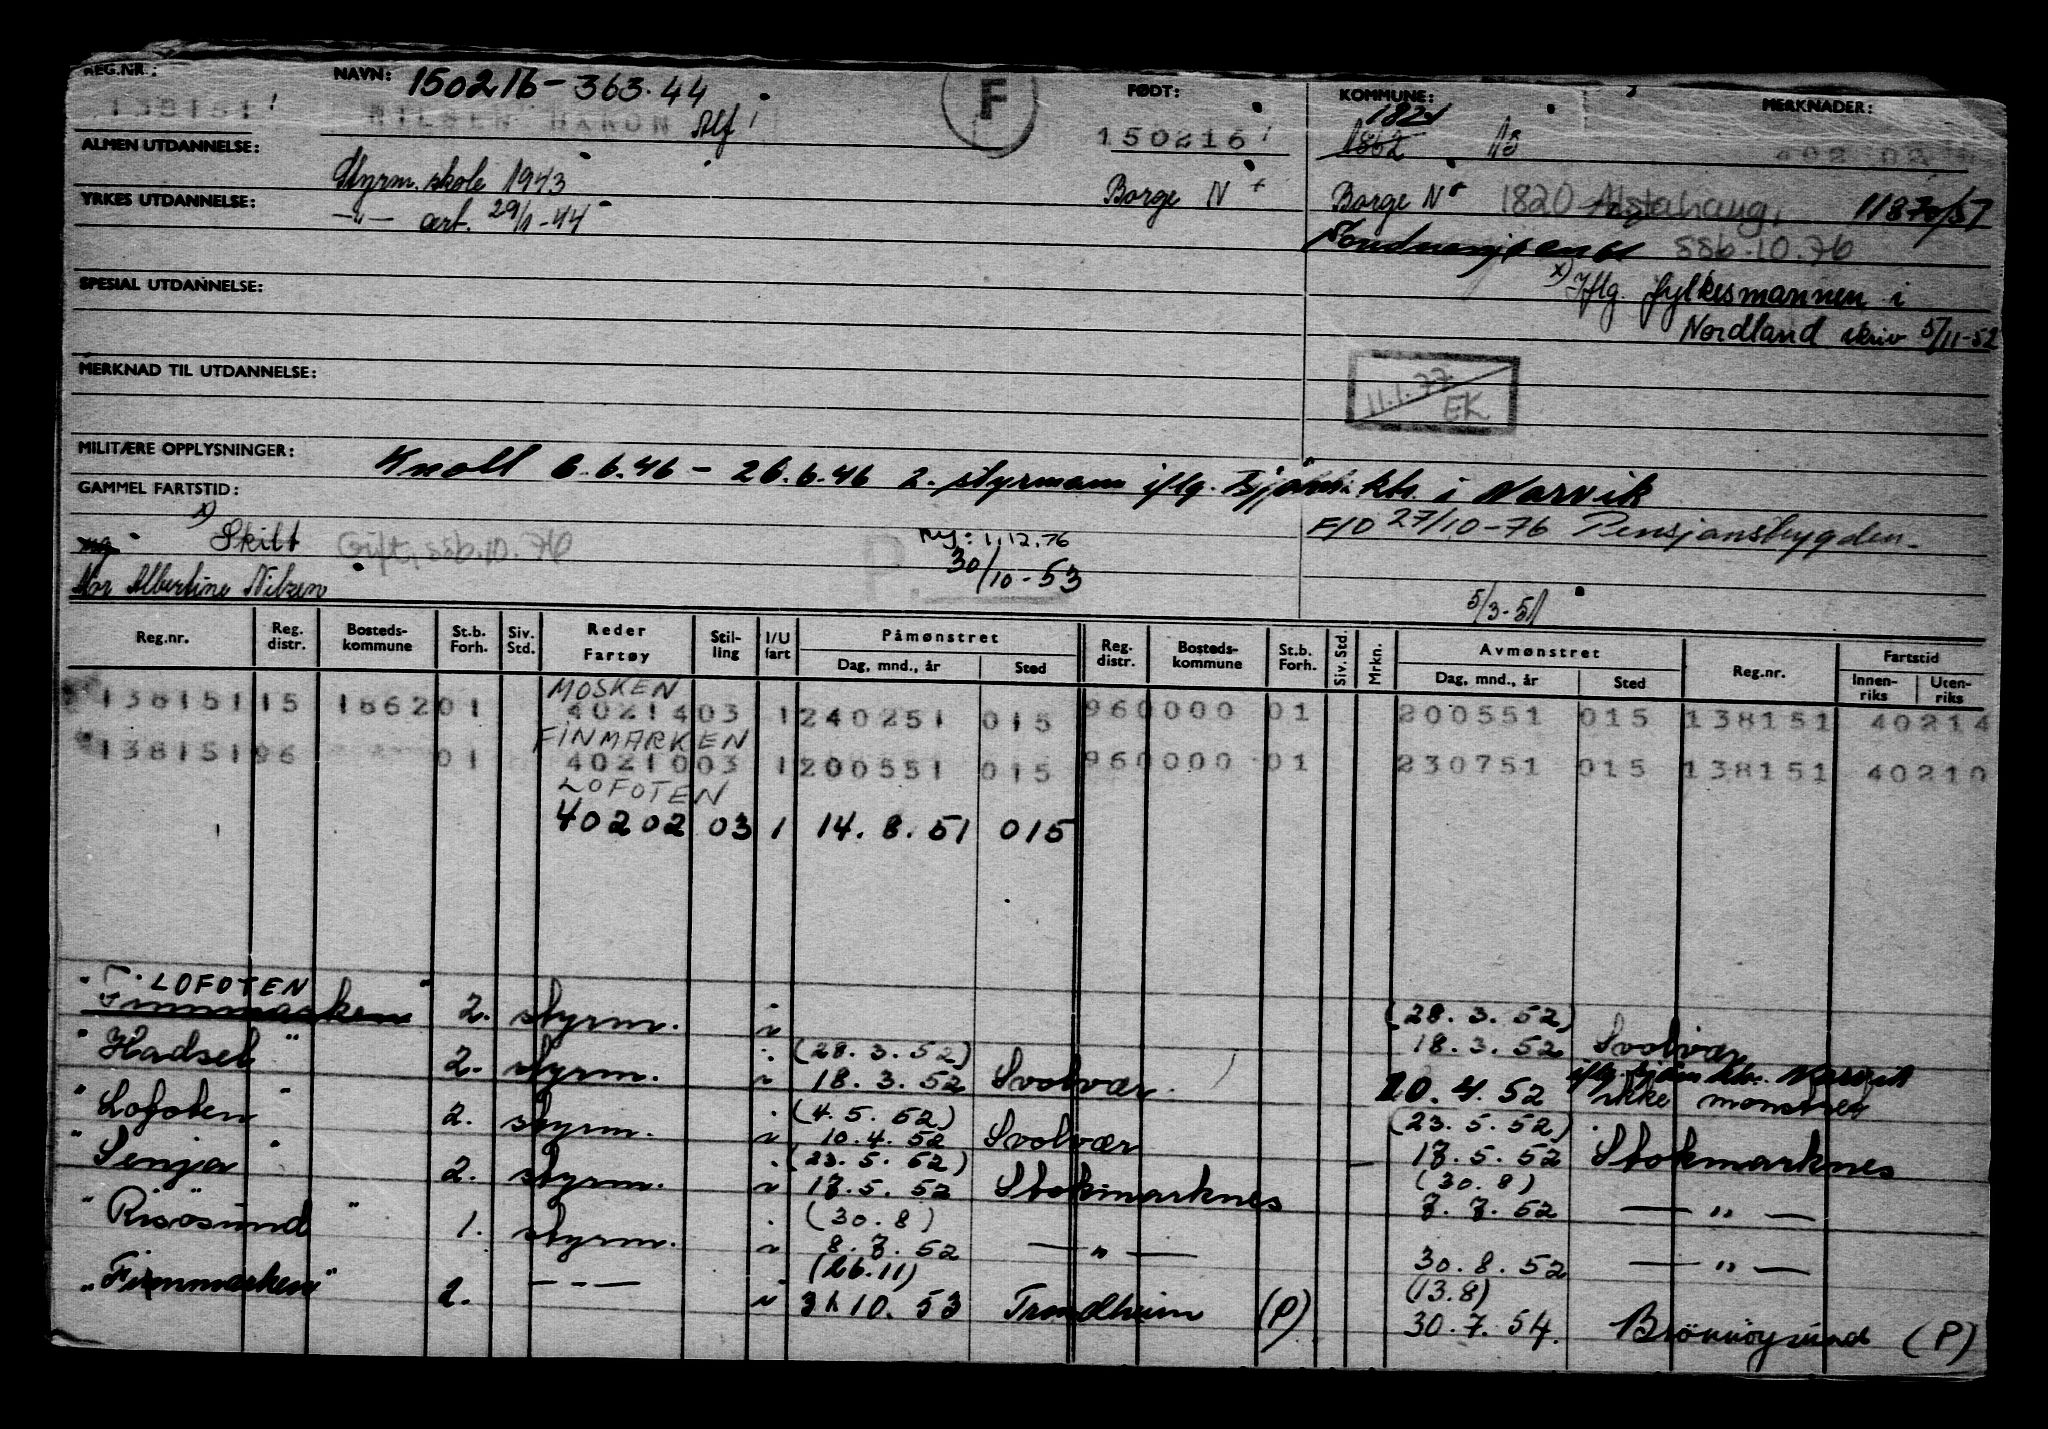 REG.NR.: NAVN: 150216-363.44 F FØDT: KOMMUNE: MERKNADER:
138151 NILSEN HAKON Alf 150216 1862 1821 18
ALMEN UTDANNELSE: Styrm.skole 1943 Borge N Borge N 1820 Alstahaug, 11870/57
YRKES UTDANNELSE: —"— ært. 29/1-44
Sandnessjøen ssb.10.76
SPESIAL UTDANNELSE: x) Iflg. fylkesmannen i
Nordland skriv 5/11-52
MERKNAD TIL UTDANNELSE:
11.1.77
EK
MILITÆRE OPPLYSNINGER: Knoll 6.6.46 - 26.6.46 2. styrmann iflg. sjöm.ktr. i Narvik
GAMMEL FARTSTID:
x) Skilt Gift, ssb.10.76 P. Ny: 1.12.76 FID 27/10-76 Pensjonstrygden.
ug 30/10-53
Mor Albertine Nilsen 5/3-51
Reg.nr. Reg. distr. Bosteds-kommune St.b. Forh. Siv. Std. Reder Fartøy Stil-ling I/U fart Påmønstret Reg. distr. Bosteds-kommune St.b. Forh. Siv. Std. Mrkn. Avmønstret Reg.nr. Fartstid
Dag, mnd., år Sted Dag, mnd., år Sted Innen-riks Uten-riks
MOSKEN
138151 15 1862 01 40214 03 1 240251 015 96 0000 01 200551 015 138151 40214
FINMARKEN
138151 96 01 40210 03 1 200551 015 96 0000 01 230751 015 138151 40210
LOFOTEN
40202 03 1 14.8.51 015
" LOFOTEN "
Finnmarken 2. styrm. i (28.3.52)
18.3.52 Svolvær
" Hadsel " 2. styrm. i (28.3.52)
18.3.52 Svolvær 10.4.52 iflg. sjöm.ktr. Narvik
ikke mönstret
" Lofoten " 2. styrm. i (4.5.52) (23.5.52)
10.4.52 Svolvær 17.5.52 Stokmarknes
" Senja " 2. styrm. i (23.5.52) (30.8)
17.5.52 Stokmarknes 7.7.52 —"—
" Risøsund " 1. styrm. i (30.8)
8.7.52 —"— 30.8.52 —"—
" Finnmarken " 2. — - — i (26.11) (13.8)
31.10.53 Trondheim (P) 30.7.54. Brönnöysund (P)